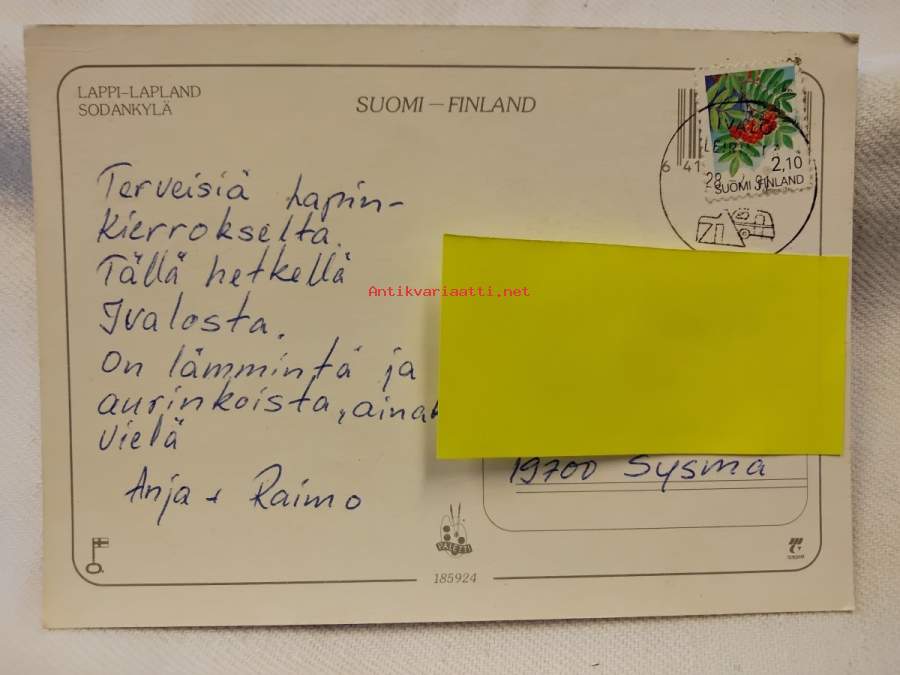 LAPPI–LAPLAND
SODANKYLÄ
SUOMI – FINLAND
2,10
SUOMI FINLAND
IVALO
6 41
28
Terveisiä Lapin-
kierrokselta.
Tällä hetkellä
Ivalosta.
On lämmintä ja
aurinkoista, aina
vielä
Anja + Raimo
Antikvariaatti.net
19700 Sysmä
PALETTI
185924